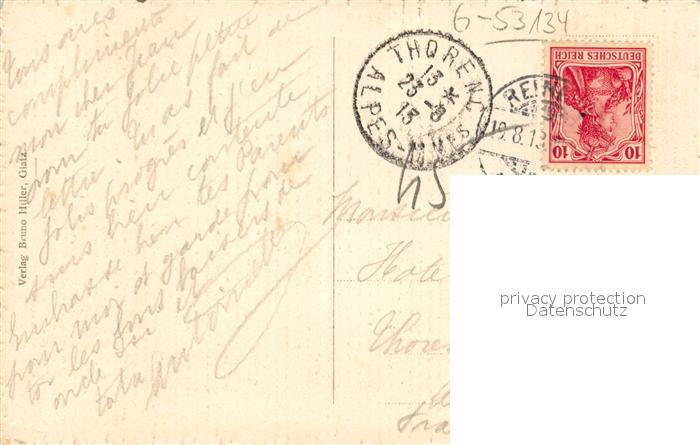 Tous mes
compliments
mon cher Jean
pour ta jolie petite
lettre. Tu as fait de
jolis progrès et j'en
suis bien contente
Embrasse bien tes Parents
pour moi et garde pour
toi les bons baisers de
oncle et
tata Antoinette
Verlag Bruno Hiller, Glatz
6-53134
THORENC
13 *
23 -8
13
ALPES-MMES
REIN
19.8.13
DEUTSCHES REICH
10 10
45
Monsieur
Hote
Thore
privacy protection
Datenschutz